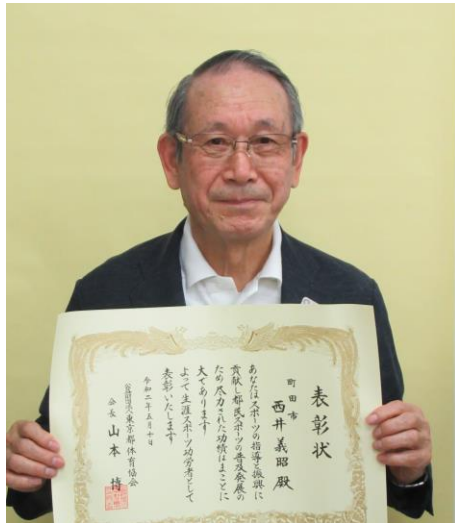 表彰状
町田市
西井義昭殿
あなたはスポーツの指導と振興に
貢献し都民スポーツの普及発展の
ため尽力された功績はまことに
大であります
よって生涯スポーツ功労者として
表彰いたします
令和二年五月十日
公益財団法人東京都体育協会
会長 山本博